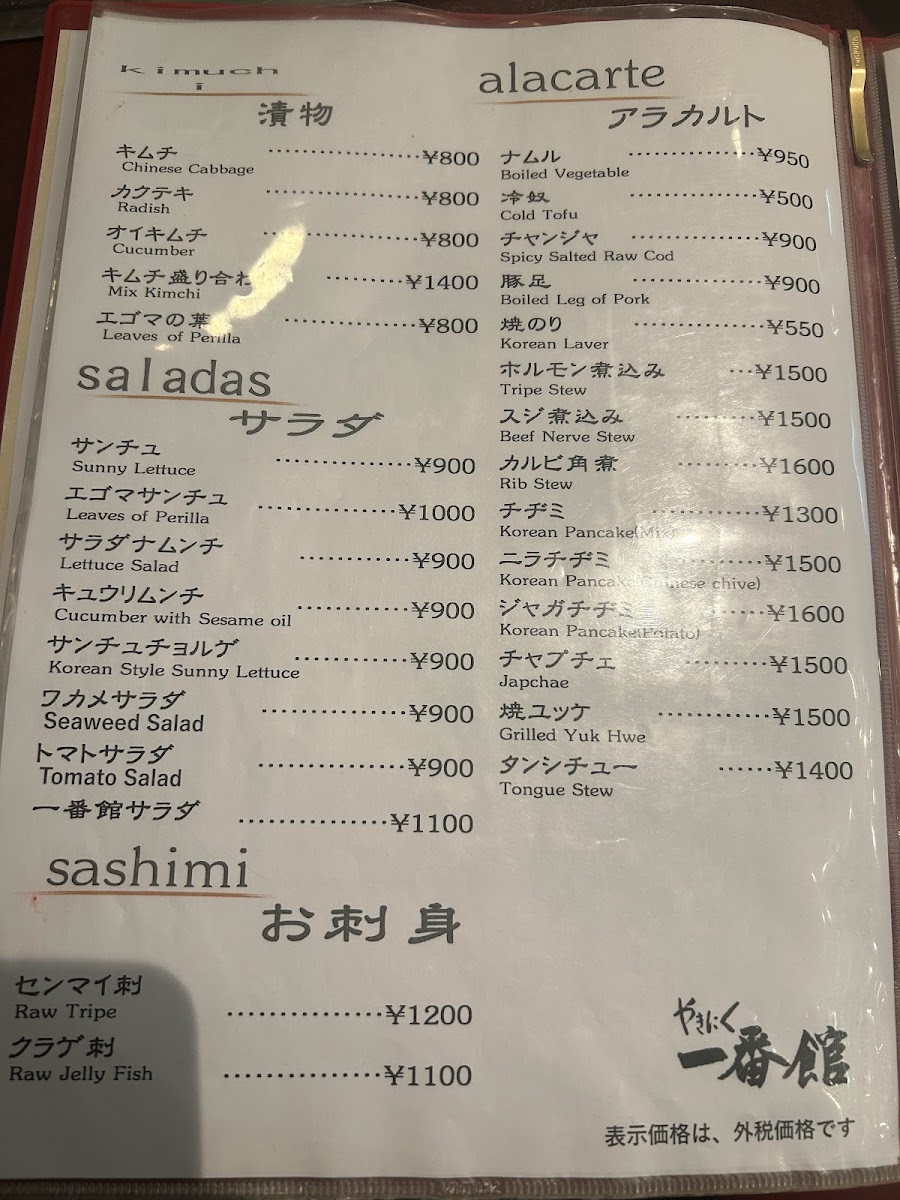 kimuch
i
漬物
キムチ ¥800
Chinese Cabbage
カクテキ ¥800
Radish
オイキムチ ¥800
Cucumber
キムチ盛り合わ ¥1400
Mix Kimchi
エゴマの葉 ¥800
Leaves of Perilla
saladas
サラダ
サンチュ ¥900
Sunny Lettuce
エゴマサンチュ ¥1000
Leaves of Perilla
サラダナムンチ ¥900
Lettuce Salad
キュウリムンチ ¥900
Cucumber with Sesame oil
サンチュチョルゲ ¥900
Korean Style Sunny Lettuce
ワカメサラダ ¥900
Seaweed Salad
トマトサラダ ¥900
Tomato Salad
一番館サラダ ¥1100
sashimi
お刺身
センマイ刺 ¥1200
Raw Tripe
クラゲ刺 ¥1100
Raw Jelly Fish
alacarte
アラカルト
ナムル ¥950
Boiled Vegetable
冷奴 ¥500
Cold Tofu
チャンジャ ¥900
Spicy Salted Raw Cod
豚足 ¥900
Boiled Leg of Pork
焼のり ¥550
Korean Laver
ホルモン煮込み ¥1500
Tripe Stew
スジ煮込み ¥1500
Beef Nerve Stew
カルビ角煮 ¥1600
Rib Stew
チヂミ ¥1300
Korean Pancake(Mix)
ニラチヂミ ¥1500
Korean Pancake(Chinese chive)
ジャガチヂミ ¥1600
Korean Pancake(Potato)
チャプチェ ¥1500
Japchae
焼ユッケ ¥1500
Grilled Yuk Hwe
タンシチュー ¥1400
Tongue Stew
やきにく
一番館
表示価格は、外税価格です